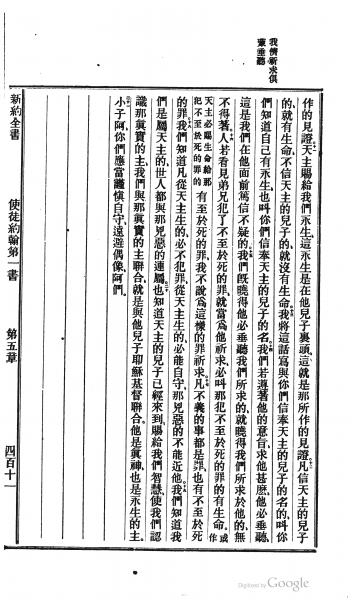 我儕祈求俱
蒙垂聽
作的見證天主賜給我們永生這永生是在他兒子裏頭這就是那所作的見證凡信天主的兒子
的就有生命不信天主的兒子的就沒有生命我將這話寫與你們信奉天主的兒子的名的叫你
們知道自己有永生也叫你們信奉天主的兒子的名我們若遵著他的意旨求他甚麽他必垂聽
這是我們在他面前篤信不疑的我們既曉得他必垂聽我們所求的就曉得我們所求於他的無
不得著人若看見弟兄犯了不至於死的罪就當爲他祈求必叫那犯不至於死的罪的有生命或作
天主必賜生命給那犯不至於死的罪的有至於死的罪我不說爲這樣的罪祈求凡不義的事都是罪也有不至於死
的罪我們知道凡從天主生的必不犯罪從天主生的必能自守那兇惡的不能近他我們知道我
們是屬天主的世人都與那兇惡的連屬也知道天主的兒子已經來到賜給我們智慧使我們認
識那眞實的主我們與那眞實的主聯合就是與他兒子耶穌基督聯合他是眞神也是永生的主
小子阿你們應當謹愼自守遠避偶像阿們
新約全書 使徒約翰第一書 第五章 四百十一
Digitized by Google